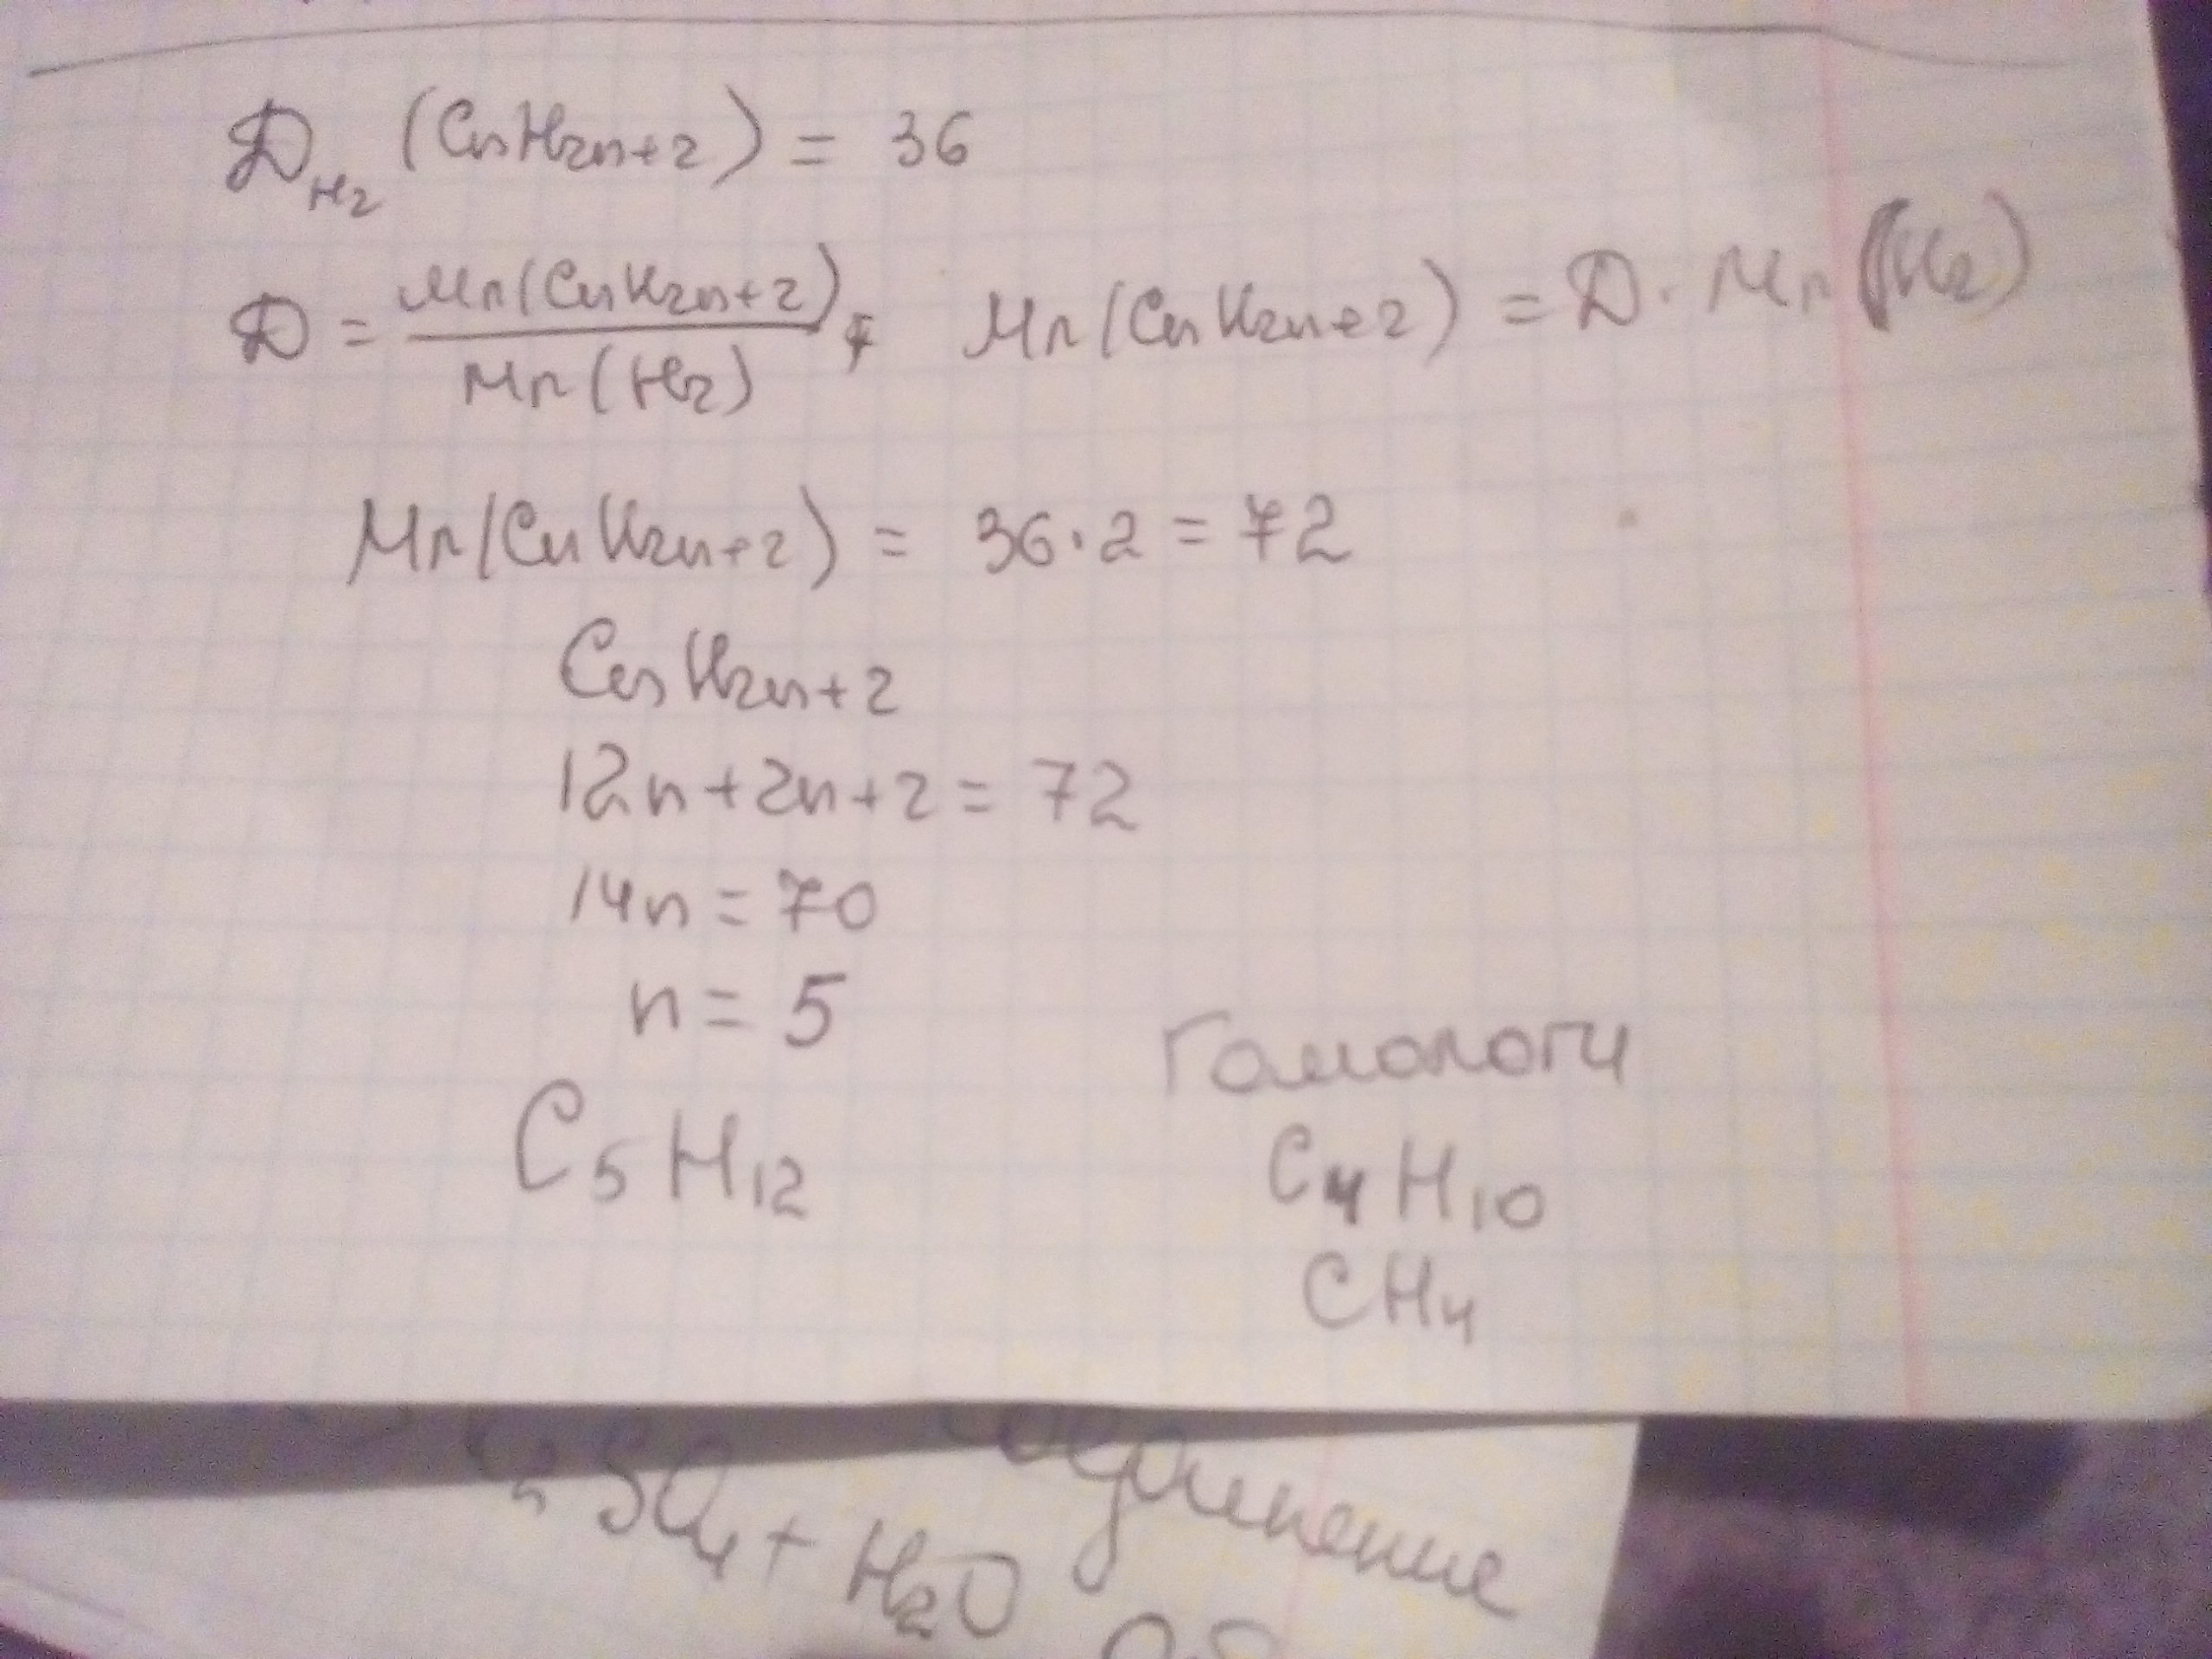 D_H2 (CnH2n+2) = 36
D = Mr(CnH2n+2) / Mr(H2), Mr(CnH2n+2) = D · Mr(H2)
Mr(CnH2n+2) = 36 · 2 = 72
CnH2n+2
12n + 2n + 2 = 72
14n = 70
n = 5
C5H12
Гомологи
C4H10
CH4
SO4 + H2O